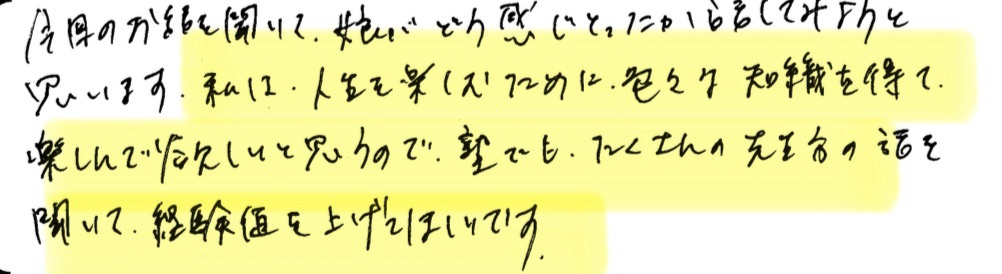 今回のお話を聞いて、娘がどう感じとったか話してみようと
思います。私は、人生を楽しむために、色々な知識を得て、
楽しんで欲しいと思うので、塾でも、たくさんの先生方の話を
聞いて、経験値を上げてほしいです。